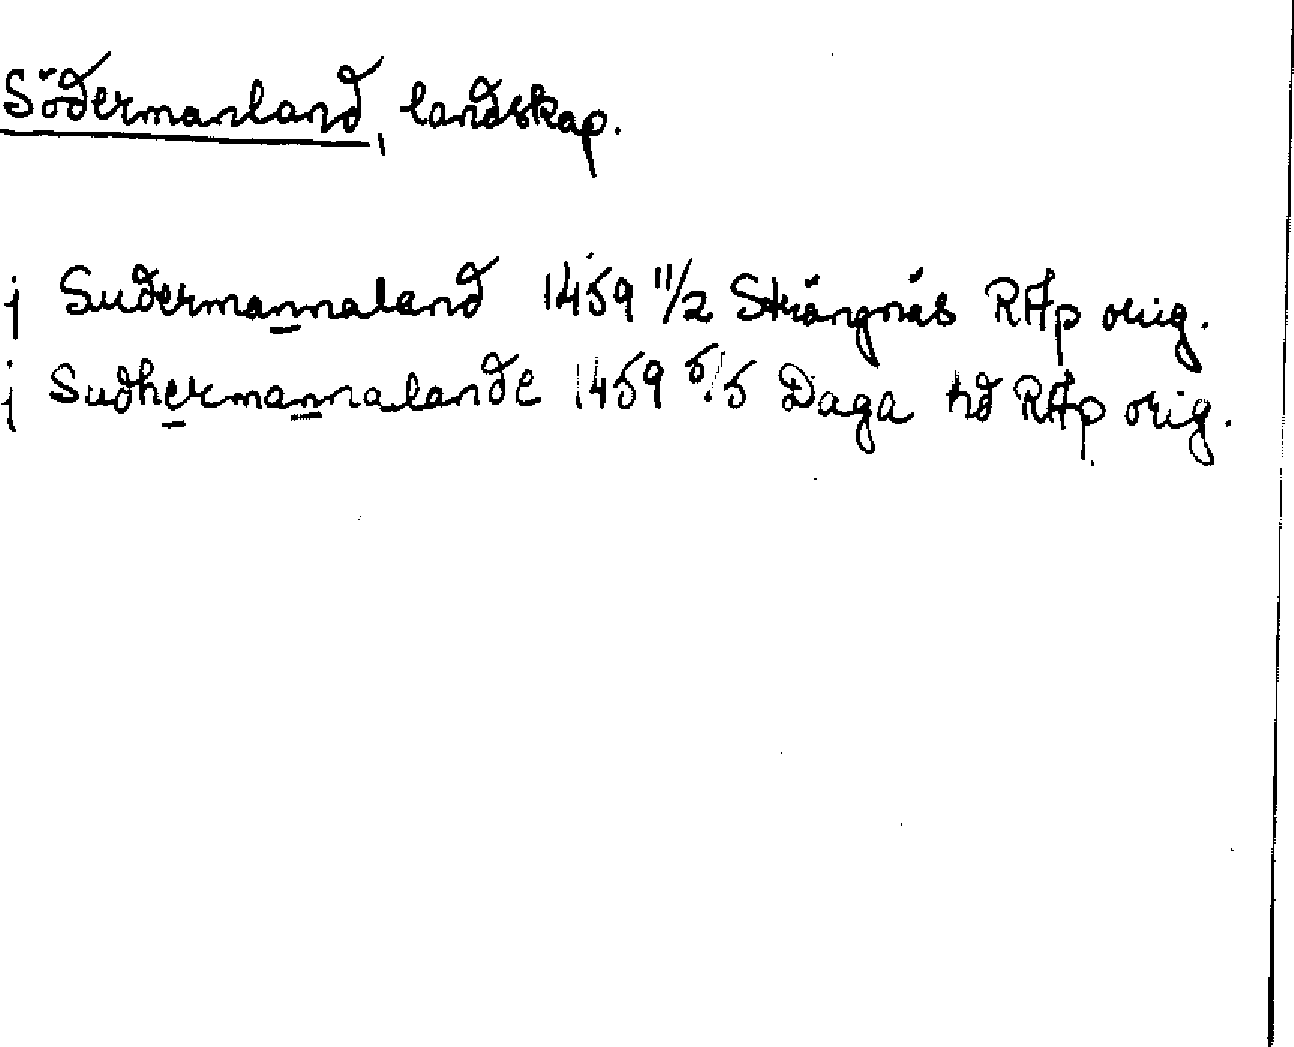 Södermanland, landskap.
j Sudermannaland 1459 11/2 Strängnäs RAp orig.
j Sudhermannalande 1459 5/5 Daga hd RAp orig.